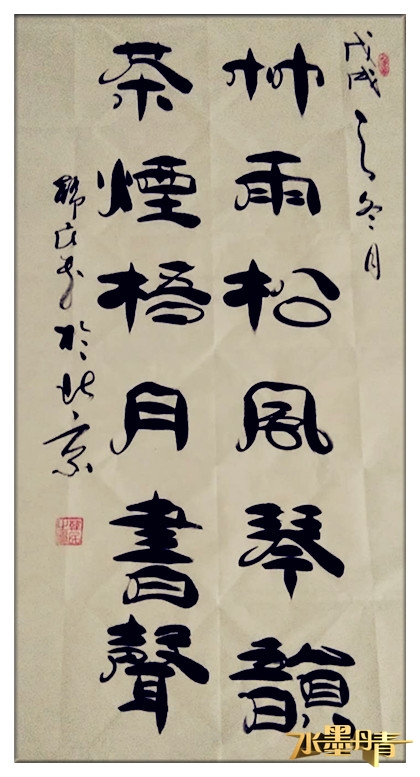 戊戌之冬月
竹雨松風琴韻
茶煙梧月書聲
於北京
水墨丹青